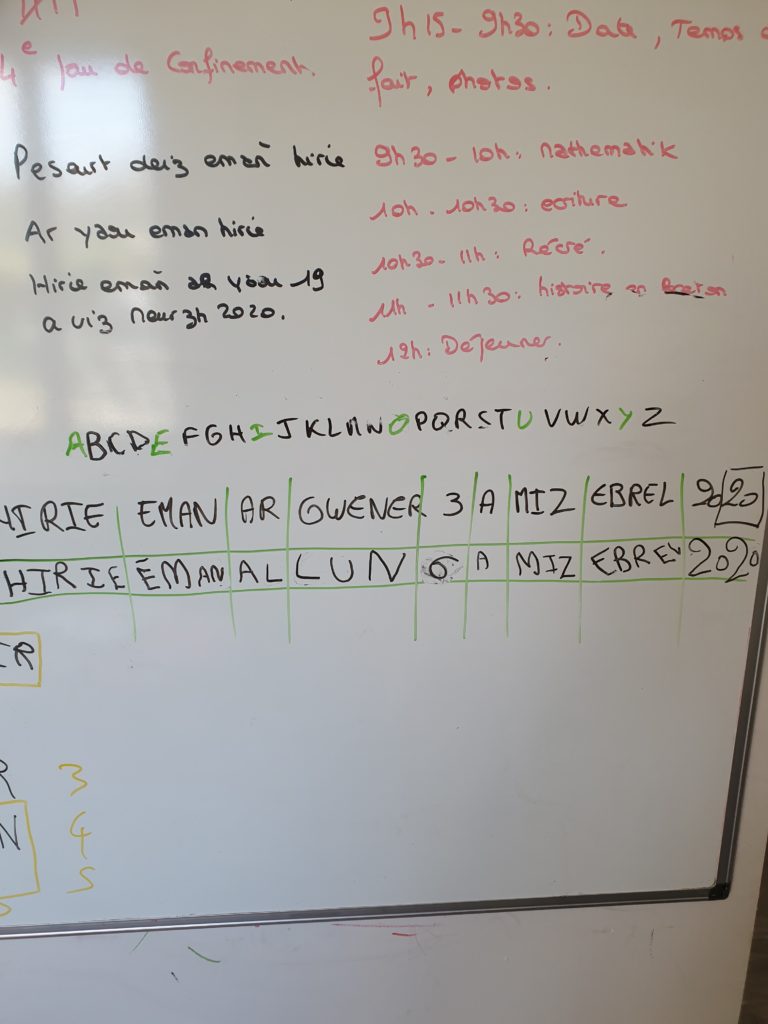 4e Jour de Confinement.
9h15 - 9h30: Date, Temps
fait, photos.
Pesaurt deiz emañ hirie
Ar yaou eman hirie
Hirie emañ ar yaou 19
a viz Meurzh 2020.
9h30 - 10h: Mathematik
10h - 10h30: ecriture
10h30 - 11h: Récré.
11h - 11h30: histoire en Breton
12h: Dejeuner.
ABCDEFGHIJKLMNOPQRSTUVWXYZ
HIRIE EMAN AR GWENER 3 A MIZ EBREL 2020
HIRIE EMAN AL LUN 6 A MIZ EBREL 2020
IR
R 3
N 4
5